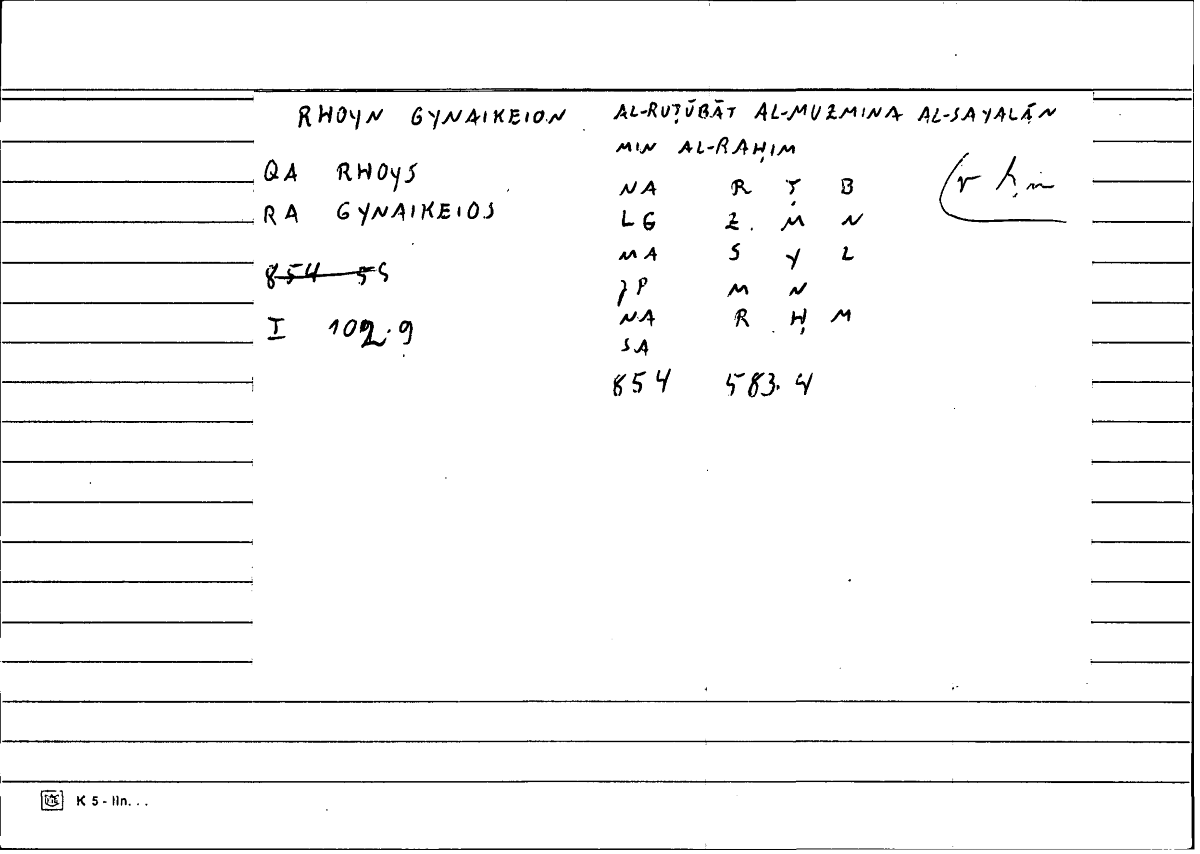 RHOYN GYNAIKEION
QA RHOYS
RA GYNAIKEIOS
I 102.9
AL-RUṬŪBĀT AL-MUZMINA AL-SAYALĀN
MIN AL-RAḤIM
NA R Ṭ B
LG Z M N
MA S Y L
JP M N
NA R Ḥ M
SA
854 583.4
r ḥ m
K 5 - lln. . .